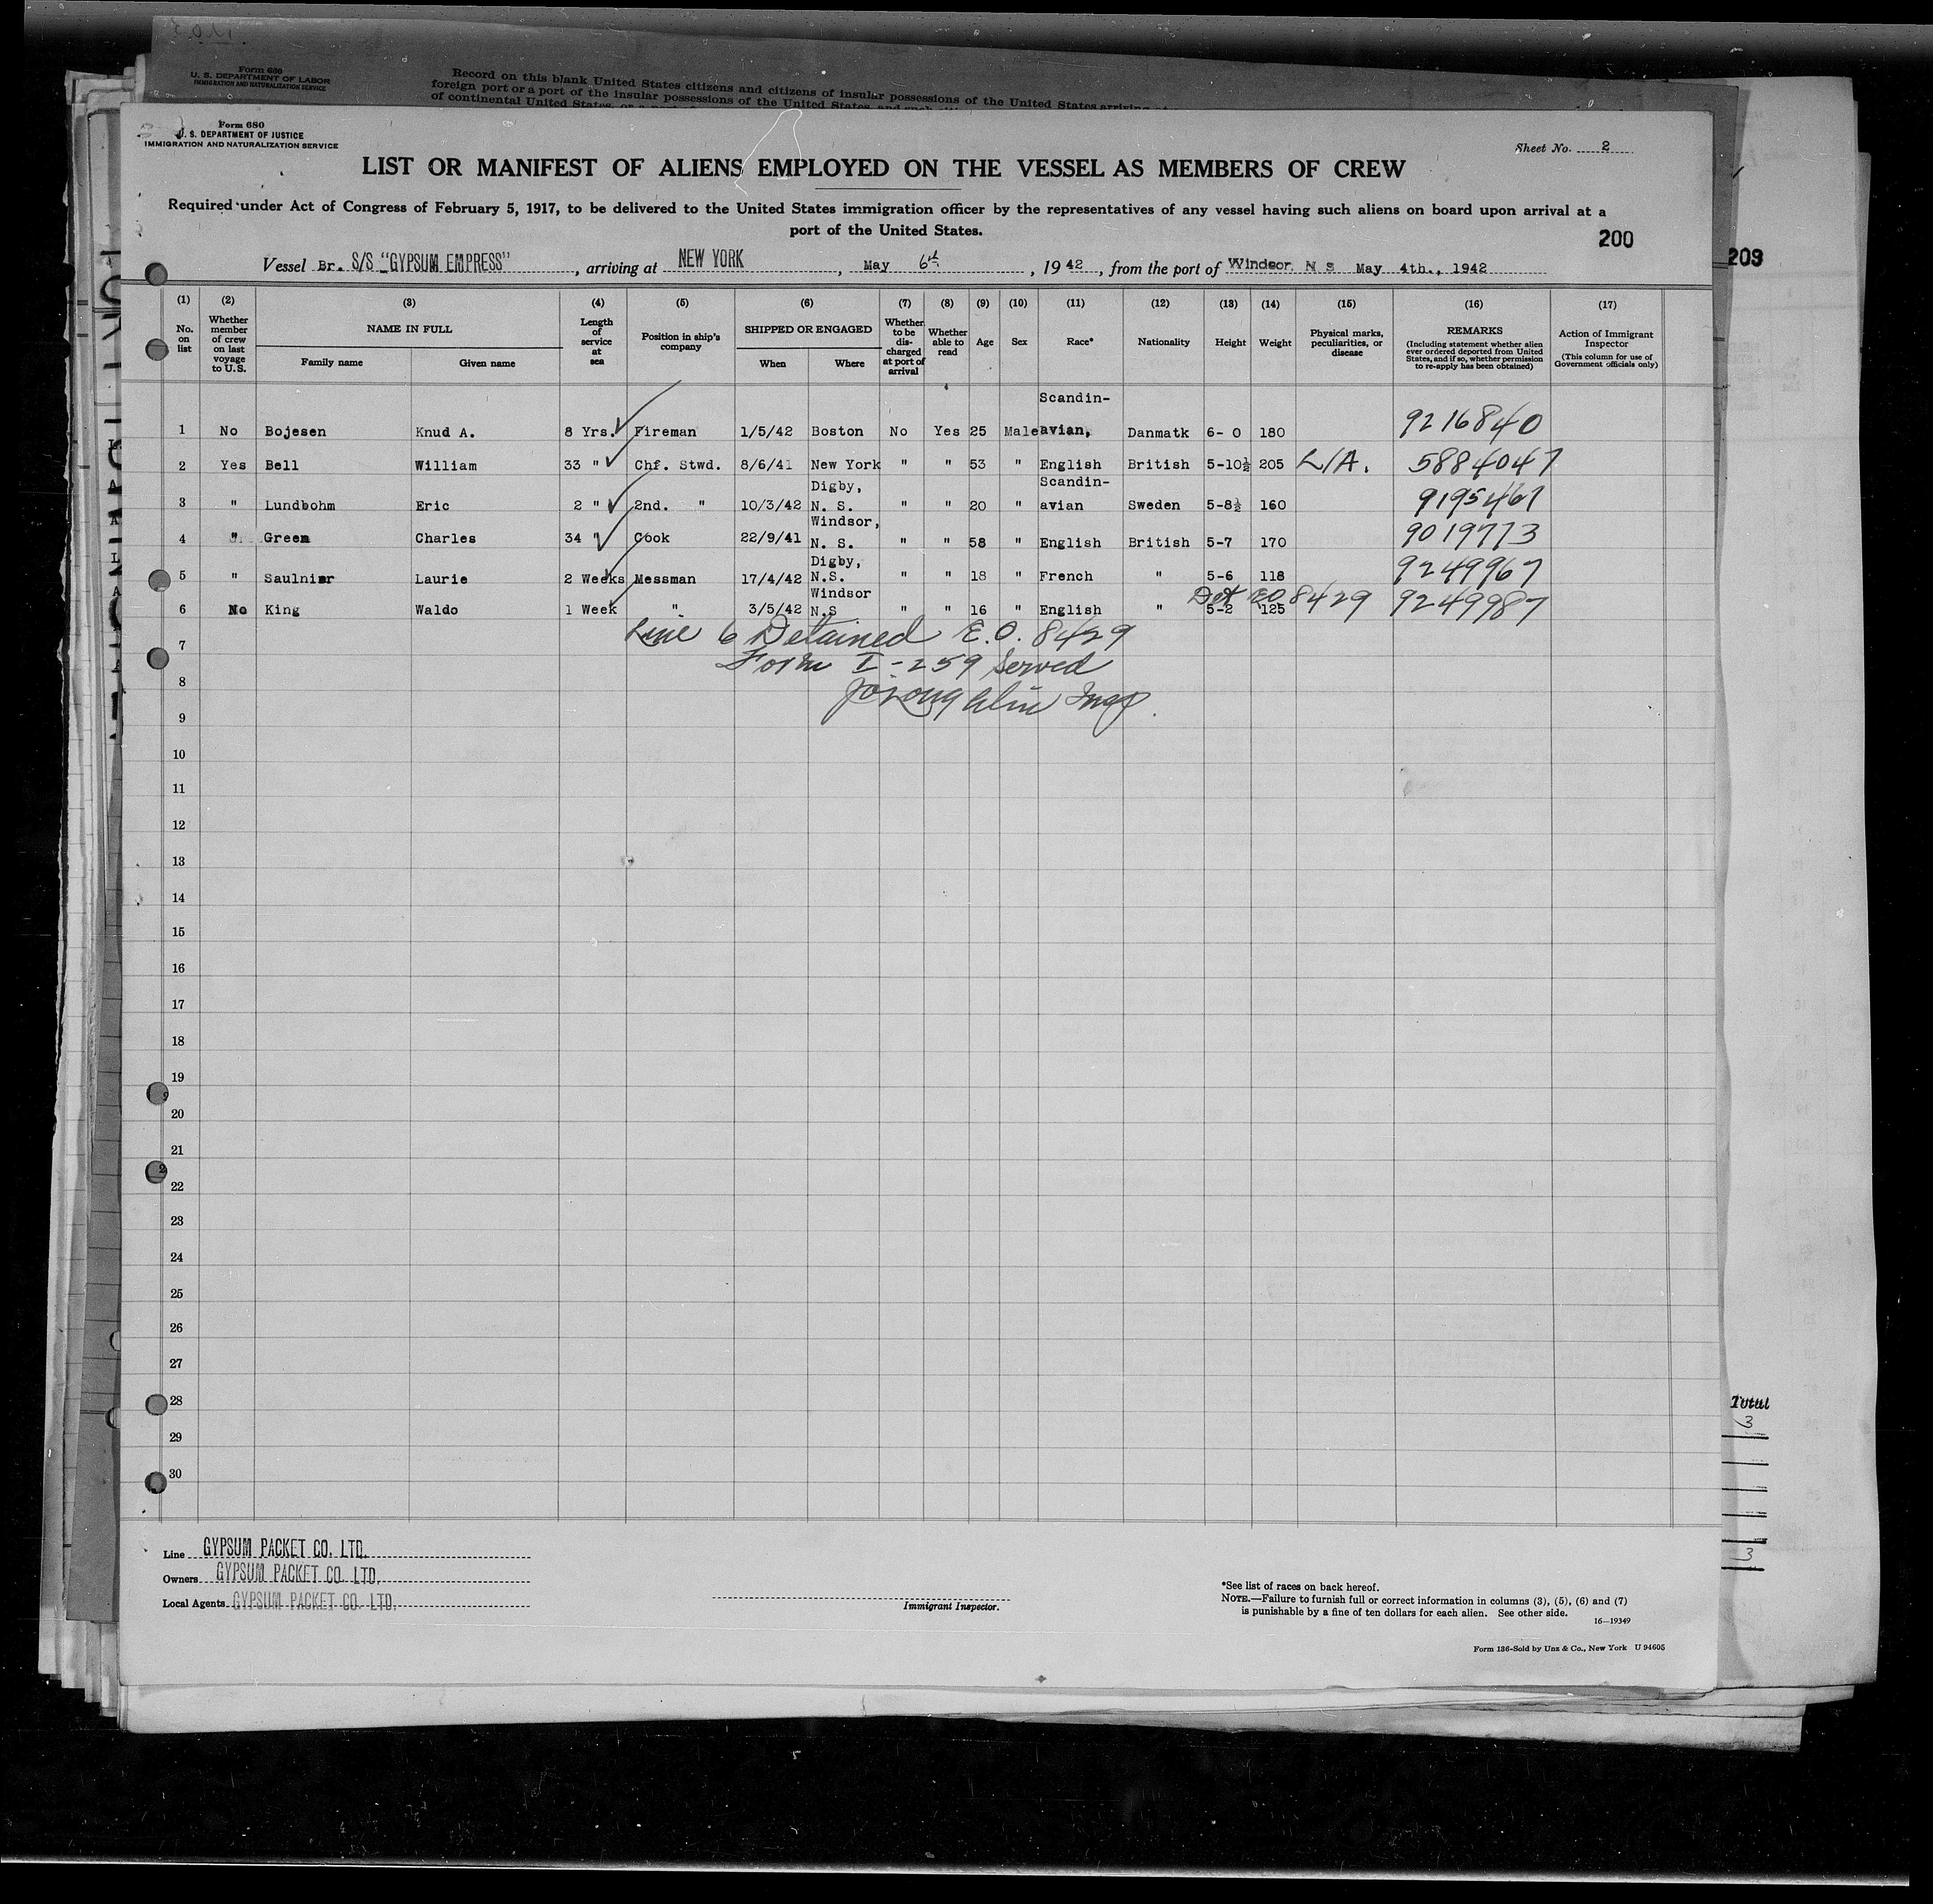 Form 680
U. S. DEPARTMENT OF LABOR
IMMIGRATION AND NATURALIZATION SERVICE
Record on this blank United States citizens and citizens of insular possessions of the United States arriving
foreign port or a port of the insular possessions of the United States
of continental United States
Form 680
U. S. DEPARTMENT OF JUSTICE
IMMIGRATION AND NATURALIZATION SERVICE
Sheet No. 2
LIST OR MANIFEST OF ALIENS EMPLOYED ON THE VESSEL AS MEMBERS OF CREW
Required under Act of Congress of February 5, 1917, to be delivered to the United States immigration officer by the representatives of any vessel having such aliens on board upon arrival at a
port of the United States.
200
203
Vessel Br. S/S "GYPSUM EMPRESS", arriving at NEW YORK, May 6th, 1942, from the port of Windsor N S May 4th., 1942
(1) (2) (3) (4) (5) (6) (7) (8) (9) (10) (11) (12) (13) (14) (15) (16) (17)
No. on list
Whether member of crew on last voyage to U.S.
NAME IN FULL
Family name Given name
Length of service at sea
Position in ship's company
SHIPPED OR ENGAGED
When Where
Whether to be discharged at port of arrival
Whether able to read
Age
Sex
Race*
Nationality
Height
Weight
Physical marks, peculiarities, or disease
REMARKS
(Including statement whether alien ever ordered deported from United States, and if so, whether permission to re-apply has been obtained)
Action of Immigrant Inspector
(This column for use of Government officials only)
1 No Bojesen Knud A. 8 Yrs. Fireman 1/5/42 Boston No Yes 25 Male Scandin-avian, Danmatk 6- 0 180 9216840
2 Yes Bell William 33 " Chf. Stwd. 8/6/41 New York " " 53 " English British 5-10½ 205 L/A. 5884047
3 " Lundbohm Eric 2 " 2nd. " 10/3/42 Digby, N. S. " " 20 " Scandin-avian Sweden 5-8½ 160 9195461
4 " Green Charles 34 " Cook 22/9/41 Windsor, N. S. " " 58 " English British 5-7 170 9019773
5 " Saulnier Laurie 2 Weeks Messman 17/4/42 Digby, N.S. " " 18 " French " 5-6 118 9249967
6 No King Waldo 1 Week " 3/5/42 Windsor N.S " " 16 " English " 5-2 125 Det EO 8429 9249987
Line 6 Detained E.O. 8429
7
Form I-259 Served
8
Insp.
9
10
11
12
13
14
15
16
17
18
19
20
21
22
23
24
25
26
27
28
29
30
Total
3
3
Line GYPSUM PACKET CO. LTD.
Owners GYPSUM PACKET CO. LTD.
Local Agents GYPSUM PACKET CO. LTD.
Immigrant Inspector.
*See list of races on back hereof.
NOTE.—Failure to furnish full or correct information in columns (3), (5), (6) and (7)
is punishable by a fine of ten dollars for each alien. See other side.
16—19349
Form 136-Sold by Unz & Co., New York U 94605